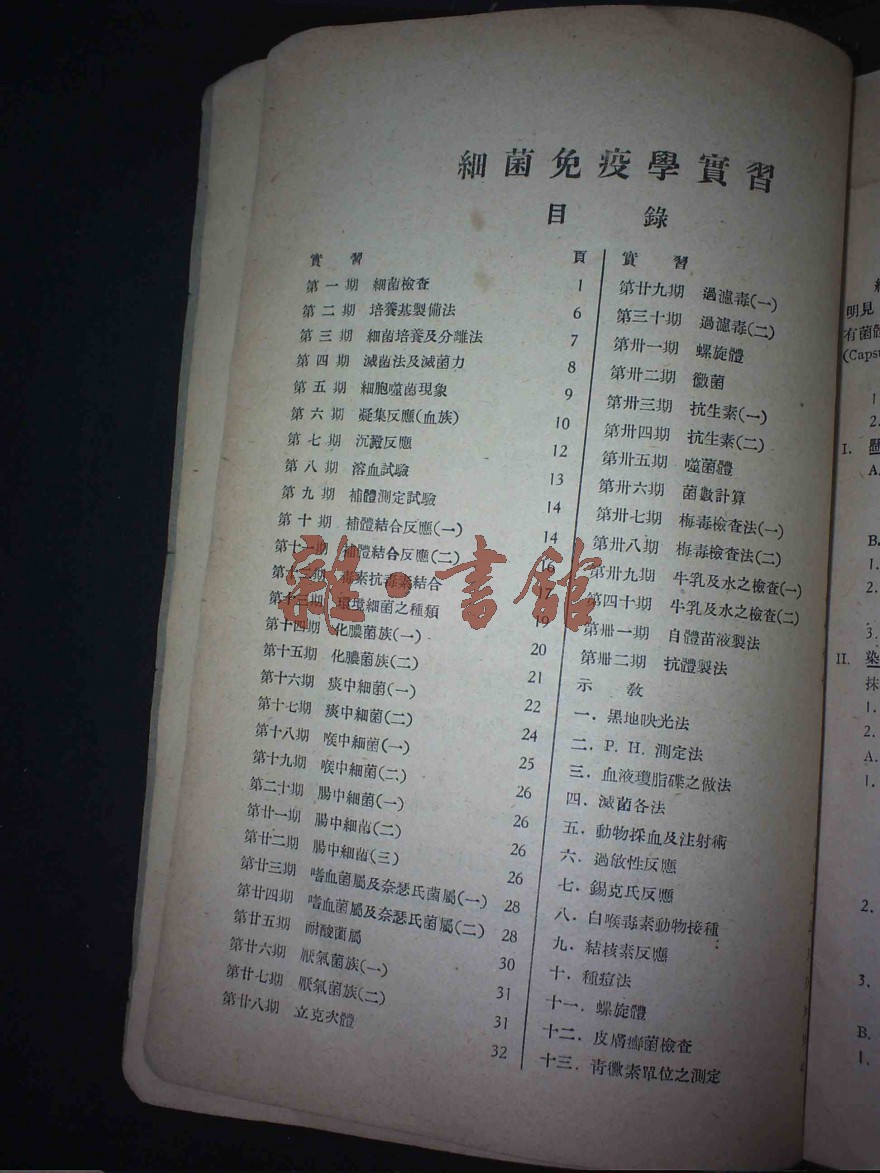 細菌免疫學實習
目 錄
實 習 頁
第一期 細菌檢查 1
第二期 培養基製備法 6
第三期 細菌培養及分離法 7
第四期 滅菌法及滅菌力 8
第五期 細胞噬菌現象 9
第六期 凝集反應(血族) 10
第七期 沉澱反應 12
第八期 溶血試驗 13
第九期 補體測定試驗 14
第十期 補體結合反應(一) 14
第十一期 補體結合反應(二) 16
第十二期 毒素抗毒素結合 17
第十三期 環境細菌之種類 19
第十四期 化膿菌族(一) 20
第十五期 化膿菌族(二) 21
第十六期 痰中細菌(一) 22
第十七期 痰中細菌(二) 24
第十八期 喉中細菌(一) 25
第十九期 喉中細菌(二) 26
第二十期 腸中細菌(一) 26
第廿一期 腸中細菌(二) 26
第廿二期 腸中細菌(三) 26
第廿三期 嗜血菌屬及奈瑟氏菌屬(一) 28
第廿四期 嗜血菌屬及奈瑟氏菌屬(二) 28
第廿五期 耐酸菌屬 30
第廿六期 厭氣菌族(一) 31
第廿七期 厭氣菌族(二) 31
第廿八期 立克次體 32
實 習
第廿九期 過濾毒(一)
第三十期 過濾毒(二)
第卅一期 螺旋體
第卅二期 黴菌
第卅三期 抗生素(一)
第卅四期 抗生素(二)
第卅五期 噬菌體
第卅六期 菌數計算
第卅七期 梅毒檢查法(一)
第卅八期 梅毒檢查法(二)
第卅九期 牛乳及水之檢查(一)
第四十期 牛乳及水之檢查(二)
第卌一期 自體苗液製法
第卌二期 抗體製法
示 教
一．黑地映光法
二．P. H. 測定法
三．血液瓊脂碟之做法
四．滅菌各法
五．動物採血及注射術
六．過敏性反應
七．錫克氏反應
八．白喉毒素動物接種
九．結核素反應
十．種痘法
十一．螺旋體
十二．皮膚癬菌檢查
十三．青黴素單位之測定
雜·書館
明見
有菌體
(Capsu
1
2.
I.
A.
B.
1.
2.
3.
II. 染
抹
1.
2.
A.
1.
2.
3.
B.
1.